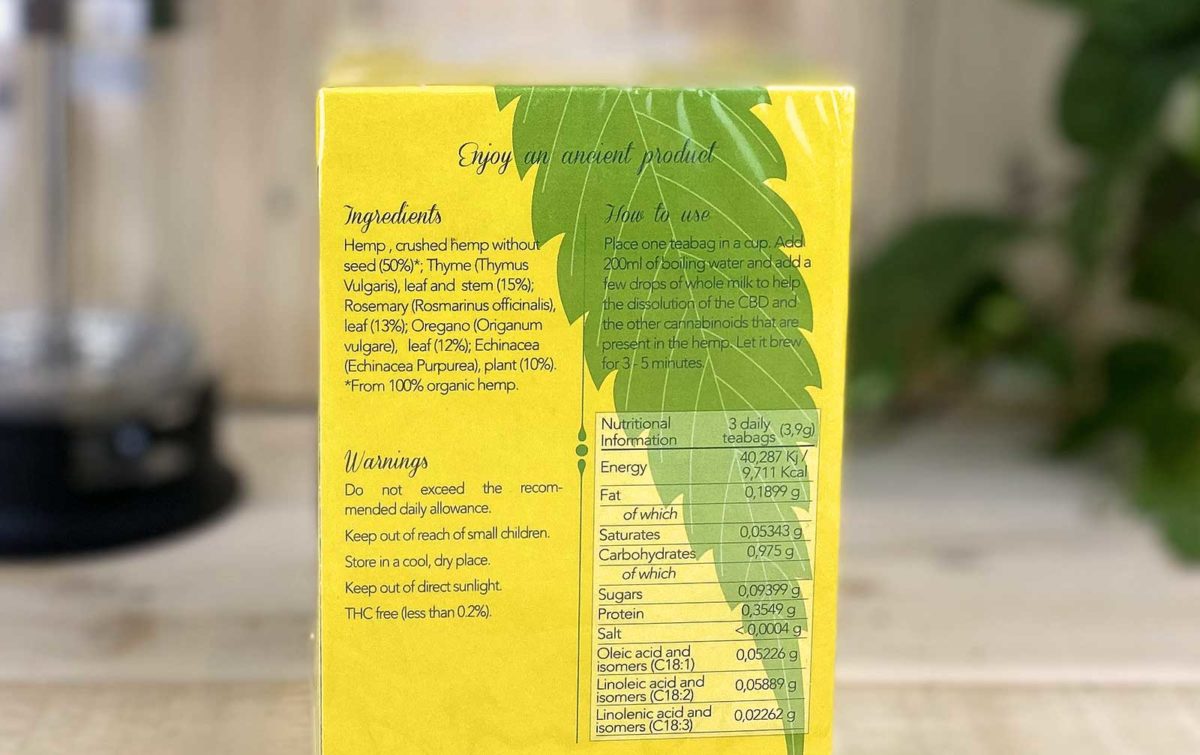 Enjoy an ancient product
Ingredients
Hemp , crushed hemp without
seed (50%)*; Thyme (Thymus
Vulgaris), leaf and stem (15%);
Rosemary (Rosmarinus officinalis),
leaf (13%); Oregano (Origanum
vulgare), leaf (12%); Echinacea
(Echinacea Purpurea), plant (10%).
*From 100% organic hemp.
Warnings
Do not exceed the recom-
mended daily allowance.
Keep out of reach of small children.
Store in a cool, dry place.
Keep out of direct sunlight.
THC free (less than 0.2%).
How to use
Place one teabag in a cup. Add
200ml of boiling water and add a
few drops of whole milk to help
the dissolution of the CBD and
the other cannabinoids that are
present in the hemp. Let it brew
for 3 - 5 minutes.
Nutritional Information 3 daily teabags (3,9g)
Energy 40,287 Kj / 9,711 Kcal
Fat 0,1899 g
of which
Saturates 0,05343 g
Carbohydrates 0,975 g
of which
Sugars 0,09399 g
Protein 0,3549 g
Salt < 0,0004 g
Oleic acid and isomers (C18:1) 0,05226 g
Linoleic acid and isomers (C18:2) 0,05889 g
Linolenic acid and isomers (C18:3) 0,02262 g